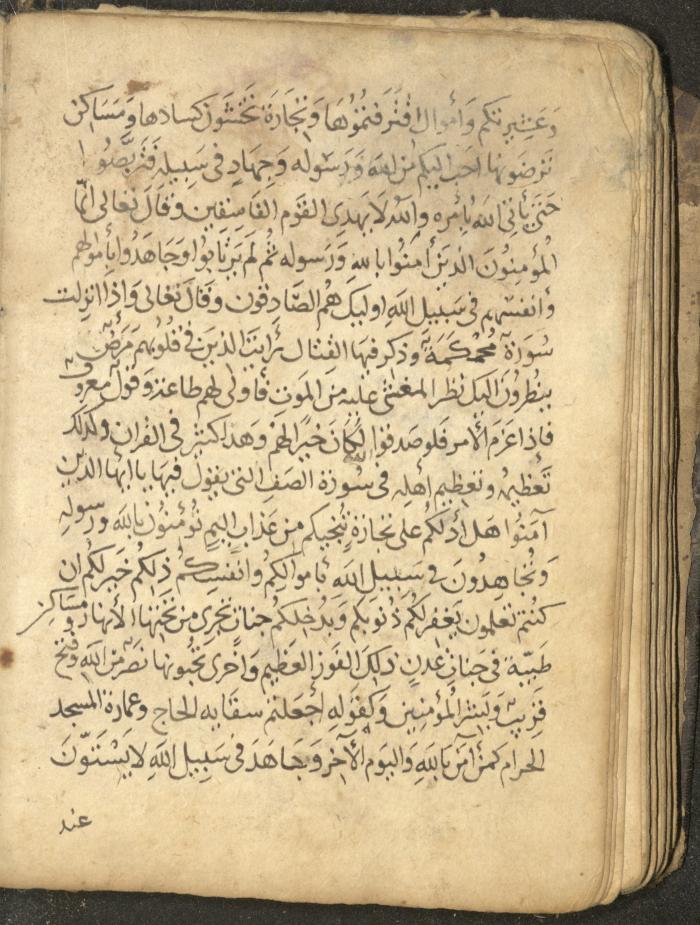 وَعَشِيرتكم وَأموال اقترفتموُها وَتجَارَة تخشَوَن كسادها وَمَسَاكن
ترضونها احَبّ اليكم مِن الله وَرَسُوله وَجهَادٍ فى سَبيله فتَربَّصُوا
حَتى يَأتىَ الله بأمره وَاللهُ لا يَهدِى القَوم الفَاسقين وقالَ تعَالى انّما
المؤمِنونَ الذينَ آمَنوُا بالله وَرَسوله ثم لم يَرتابوُا وجَاهَدُوا بأموَالهم
وَانفسهم فى سَبيل اللهِ اوليك هُم الصَّادقون وقال تعَالى وَاذا انزلت
سُورَة محُكمَة وذكر فيهَا القتال رَأيتَ الذينَ فى قلوُبهم مَرَضٌ
ينظرُونَ اليك نَظر المغشىّ عليه مِنَ المَوتِ فأولى لهم طاعَة وَقولٌ معروف
فاذا عَزمَ الأمر فلو صَدقوا الله لكانَ خيرًا لهمُ وَهذا كثير فى القرآن وكذلك
تَعظيمُه وتعظيم أهلِه فى سُورَة الصَف التى يقول فيهَا يا ايها الذين
آمَنوُا هَل أدلكُم عَلى تجَارَةٍ تنجيكم من عَذاب اليم تؤمنوُن بالله ورسولهِ
وتجُاهدُونَ فى سَبيل الله بأموَالكِم وَانفسِكُم ذلكمُ خيَر لكُم ان
كنتم تعلمون يَغفر لكُم ذنوبَكم وَيدخلكُم جَنات تجرى من تحتها الأنهار ومَسَاكن
طيّبَة فى جَنات عَدن ذلك الفَوز العَظيم وَاخرى تحبُونها نَصر من الله وَفتح
قريبٌ وَبَشر المؤمِنين وَكقوله أجَعَلتم سقَايه الحاج وعمارة المسجد
الحرام كمَن آمَن باللهِ وَاليَوم الآخر وَجَاهَدَ فى سَبِيل اللهِ لا يَسْتَوُونَ
عند